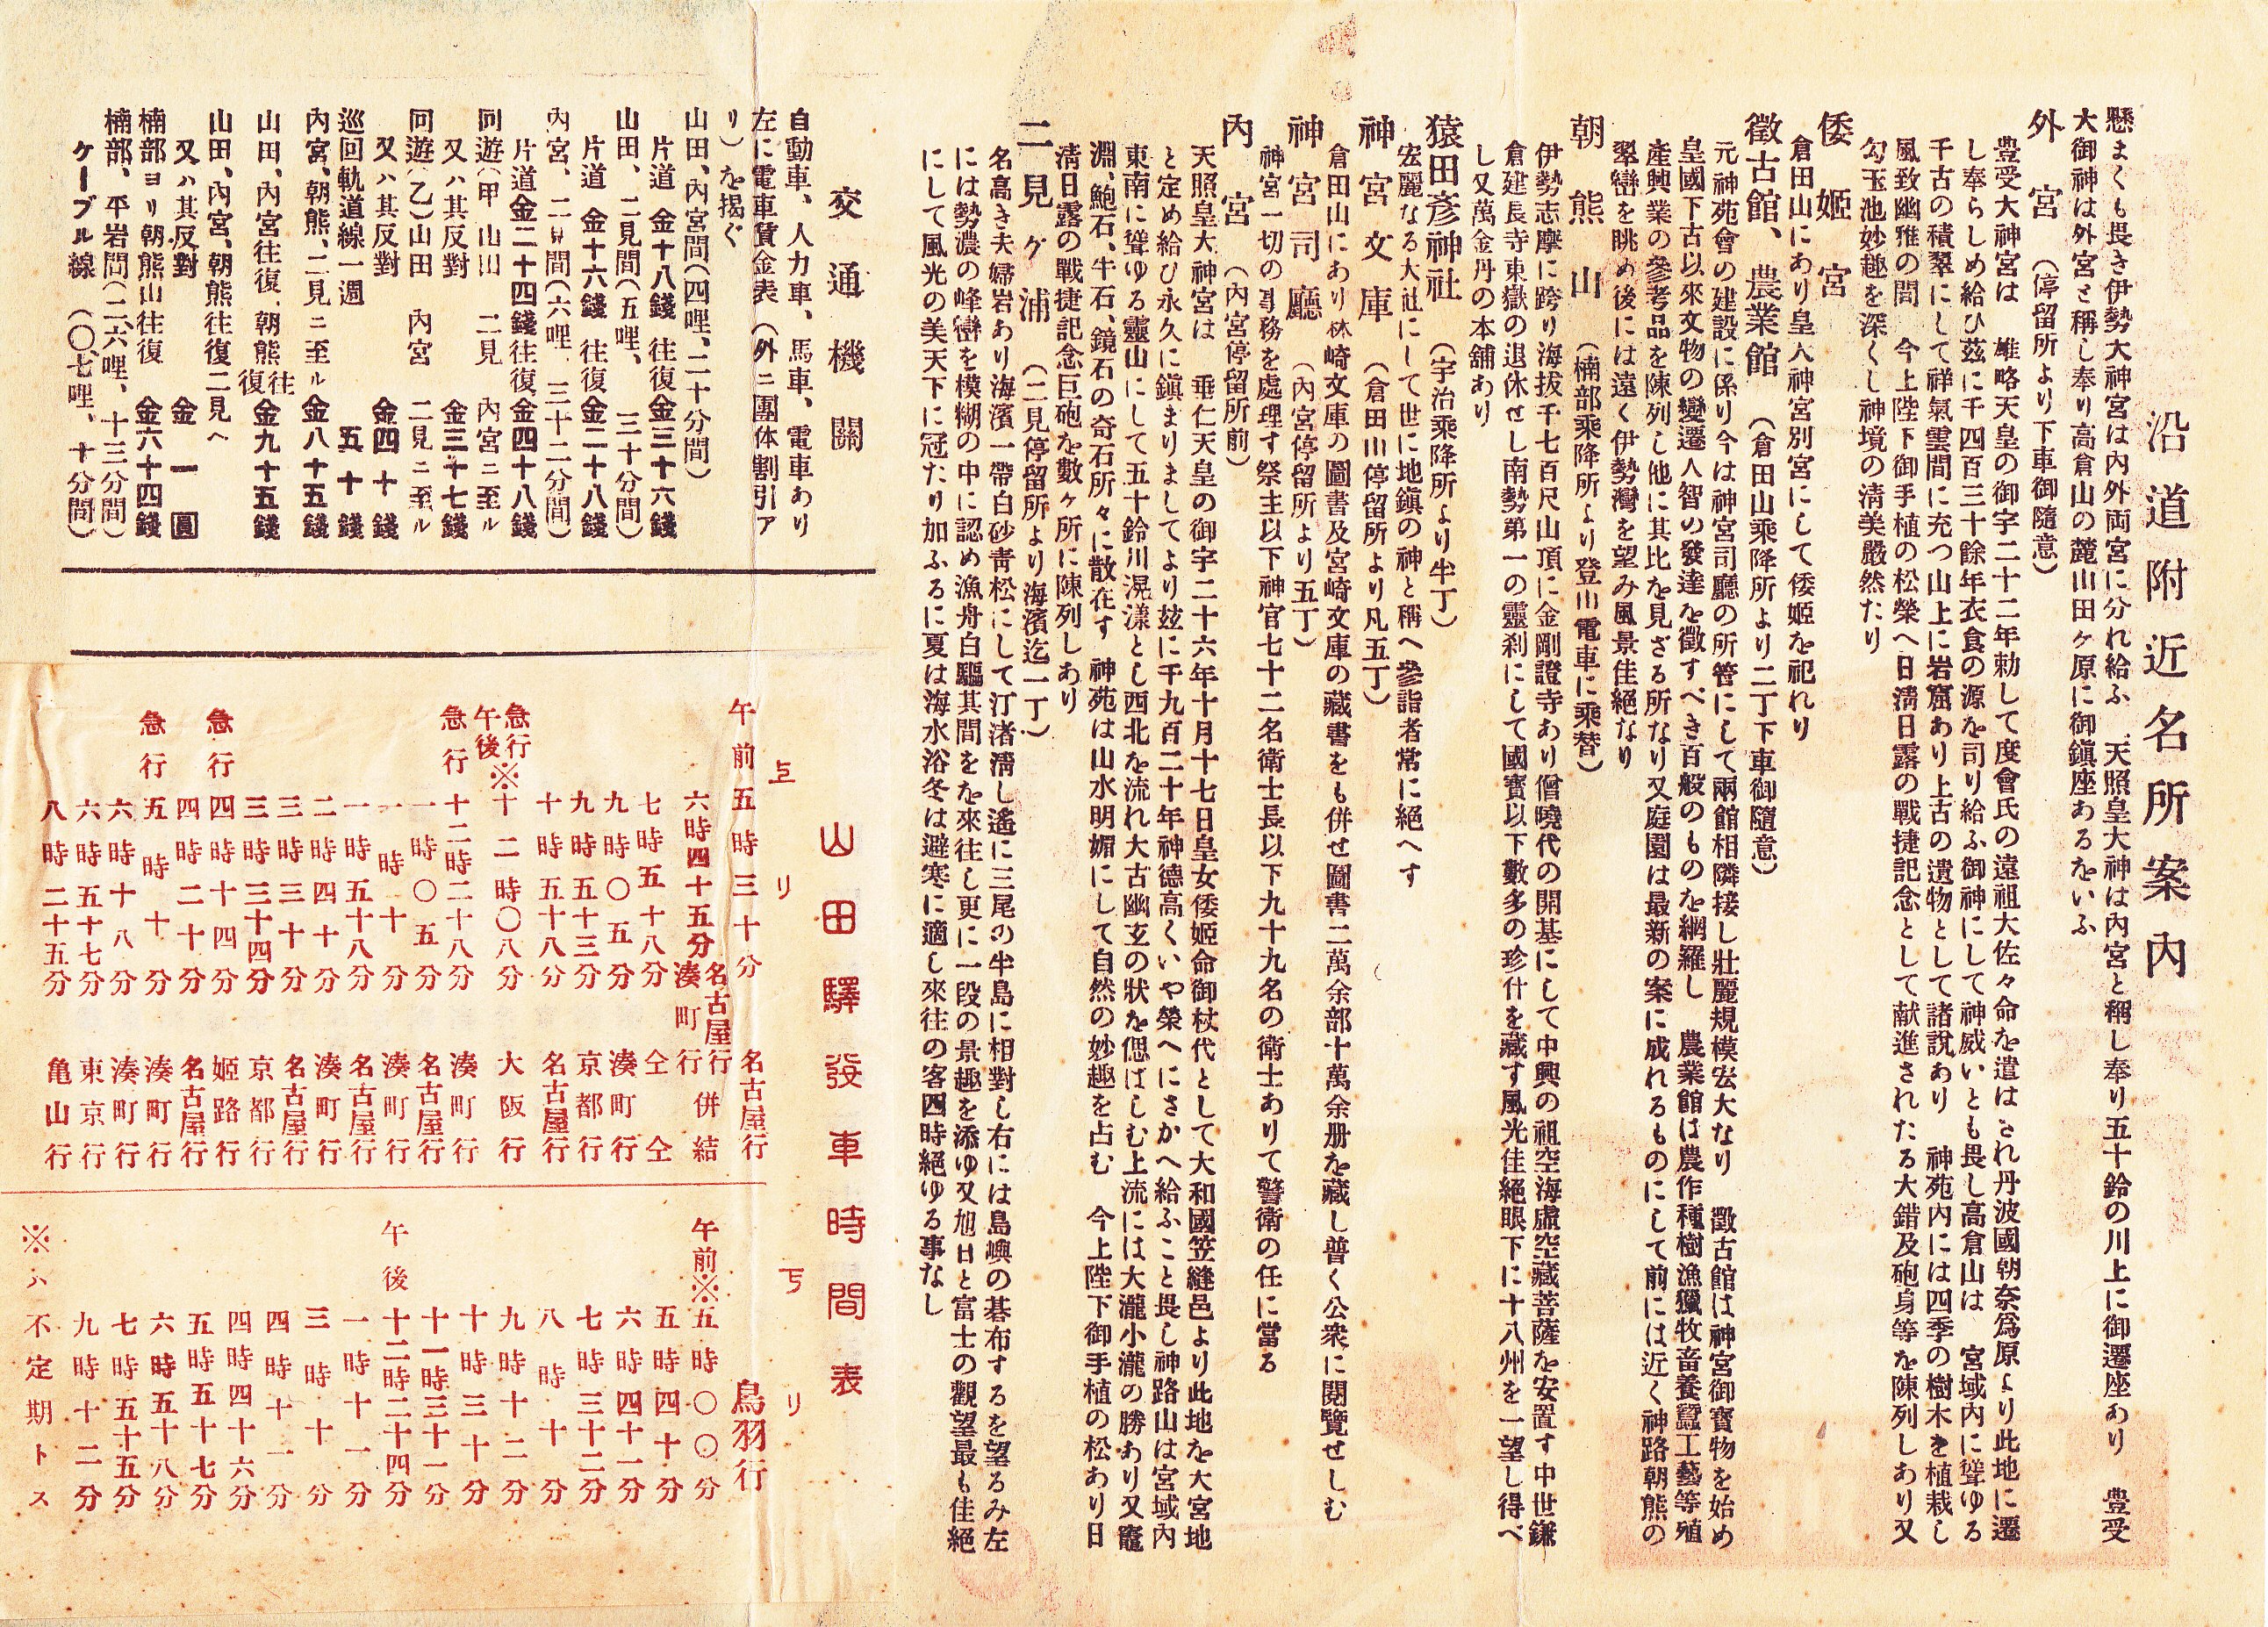 沿道附近名所案内
懸まくも畏き伊勢大神宮は内外両宮に分れ給ふ　天照皇大神は内宮と稱し奉り五十鈴の川上に御遷座あり　豊受
大御神は外宮と稱し奉り高倉山の麓山田ヶ原に御鎭座あるをいふ
外宮　(停留所より下車御隨意)
豊受大神宮は　雄略天皇の御宇二十二年勅して度會氏の遠祖大佐々命を遣はされ丹波國朝奈爲原より此地に遷
し奉らしめ給ひ茲に千四百三十餘年衣食の源を司り給ふ御神にして神威いとも畏し高倉山は　宮域内に聳ゆる
千古の積翠にして祥氣雲間に充つ山上に岩窟あり上古の遺物として諸説あり　神苑内には四季の樹木を植栽し
風致幽雅の間　今上陛下御手植の松榮へ日淸日露の戰捷記念として献進されたる大錨及砲身等を陳列しあり又
勾玉池妙趣を深くし神境の淸美嚴然たり
倭姫宮
倉田山にあり皇大神宮別宮にして倭姫を祀れり
徵古館、農業館　(倉田山乘降所より二丁下車御隨意)
元神苑會の建設に係り今は神宮司廳の所管にして兩館相隣接し壯麗規模宏大なり　徵古館は神宮御寶物を始め
皇國下古以來文物の變遷人智の發達を徵すべき百般のものを網羅し　農業館は農作種樹漁獵牧畜養蠶工藝等殖
產興業の參考品を陳列し他に其比を見ざる所なり又庭園は最新の案に成れるものにして前には近く神路朝熊の
翠巒を眺め後には遠く伊勢灣を望み風景佳絕なり
朝熊山　(楠部乘降所より登山電車に乘替)
伊勢志摩に跨り海拔千七百尺山頂に金剛證寺あり僧曉代の開基にして中興の祖空海虛空藏菩薩を安置す中世鎌
倉建長寺東嶽の退休せし南勢第一の靈刹にして國寶以下數多の珍什を藏す風光佳絕眼下に十八州を一望し得べ
し又萬金丹の本舖あり
猿田彥神社　(宇治乘降所より半丁)
宏麗なる大社にして世に地鎭の神と稱へ參詣者常に絕へす
神宮文庫　(倉田山停留所より凡五丁)
倉田山にあり林崎文庫の圖書及宮崎文庫の藏書をも併せ圖書二萬余部十萬余册を藏し普く公衆に閱覽せしむ
神宮司廳　(内宮停留所より五丁)
神宮一切の事務を處理す祭主以下神官七十二名衛士長以下九十九名の衛士ありて警衛の任に當る
内宮　(内宮停留所前)
天照皇大神宮は　垂仁天皇の御宇二十六年十月十七日皇女倭姫命御杖代として大和國笠縫邑より此地を大宮地
と定め給ひ永久に鎭まりましてより玆に千九百二十年神德高くいや榮へにさかへ給ふこと畏し神路山は宮域内
東南に聳ゆる靈山にして五十鈴川滉漾とし西北を流れ大古幽玄の狀を偲ばしむ上流には大瀧小瀧の勝あり又竈
淵、鮑石、牛石、鏡石の奇石所々に散在す　神苑は山水明媚にして自然の妙趣を占む　今上陛下御手植の松あり日
淸日露の戰捷記念巨砲を數ヶ所に陳列しあり
二見ヶ浦　(二見停留所より海濱迄一丁)
名高き夫婦岩あり海濱一帶白砂靑松にして汀渚淸し遙に三尾の半島に相對し右には島嶼の碁布するを望るみ左
には勢濃の峰巒を模糊の中に認め漁舟白驅其間を來往し更に一段の景趣を添ゆ又旭日と富士の觀望最も佳絕
にして風光の美天下に冠たり加ふるに夏は海水浴冬は避寒に適し來往の客四時絕ゆる事なし
交通機關
自動車、人力車、馬車、電車あり
左に電車賃金表(外ニ團体割引ア
リ)を揭ぐ
山田、内宮間(四哩、二十分間)
片道　金十八錢　往復金三十六錢
山田、二見間(五哩、　三十分間)
片道　金十六錢　往復金二十八錢
内宮、二見間(六哩、三十二分間)
片道金二十四錢往復金四十八錢
回遊(甲　山田　二見　内宮ニ至ル
又ハ其反對　金三十七錢
回遊(乙)山田　内宮　二見ニ至ル
又ハ其反對　金四十錢
巡回軌道線一週　五十錢
内宮、朝熊、二見ニ至ル　金八十五錢
山田、内宮往復、朝熊往復　金九十五錢
山田、内宮、朝熊往復二見へ
又ハ其反對　金一圓
楠部ヨリ朝熊山往復　金六十四錢
楠部、平岩間(二、六哩、十三分間)
ケーブル線　(〇、七哩、十分間)
山田驛發車時間表
上リ
午前五時三十分　名古屋行
六時四十五分　名古屋行　湊町行　併結
七時五十八分　仝　仝
九時〇五分　湊町行
九時五十三分　京都行
十時五十八分　名古屋行
急行　午後※十二時〇八分　大阪行
急行　十二時二十八分　湊町行
一時〇五分　名古屋行
一時十分　湊町行
一時五十八分　名古屋行
二時四十分　湊町行
三時三十分　名古屋行
三時三十四分　京都行
急行　四時十四分　姫路行
四時二十分　名古屋行
急行　五時十分　湊町行
六時十八分　湊町行
六時五十七分　東京行
八時二十五分　亀山行
下リ
鳥羽行
午前※五時〇〇分
五時四十分
六時四十一分
七時三十二分
八時十分
九時十二分
十時三十分
十一時三十一分
午後　十二時二十四分
一時十一分
三時十分
四時十一分
四時四十六分
五時五十七分
六時五十八分
七時五十五分
九時十二分
※ハ不定期トス